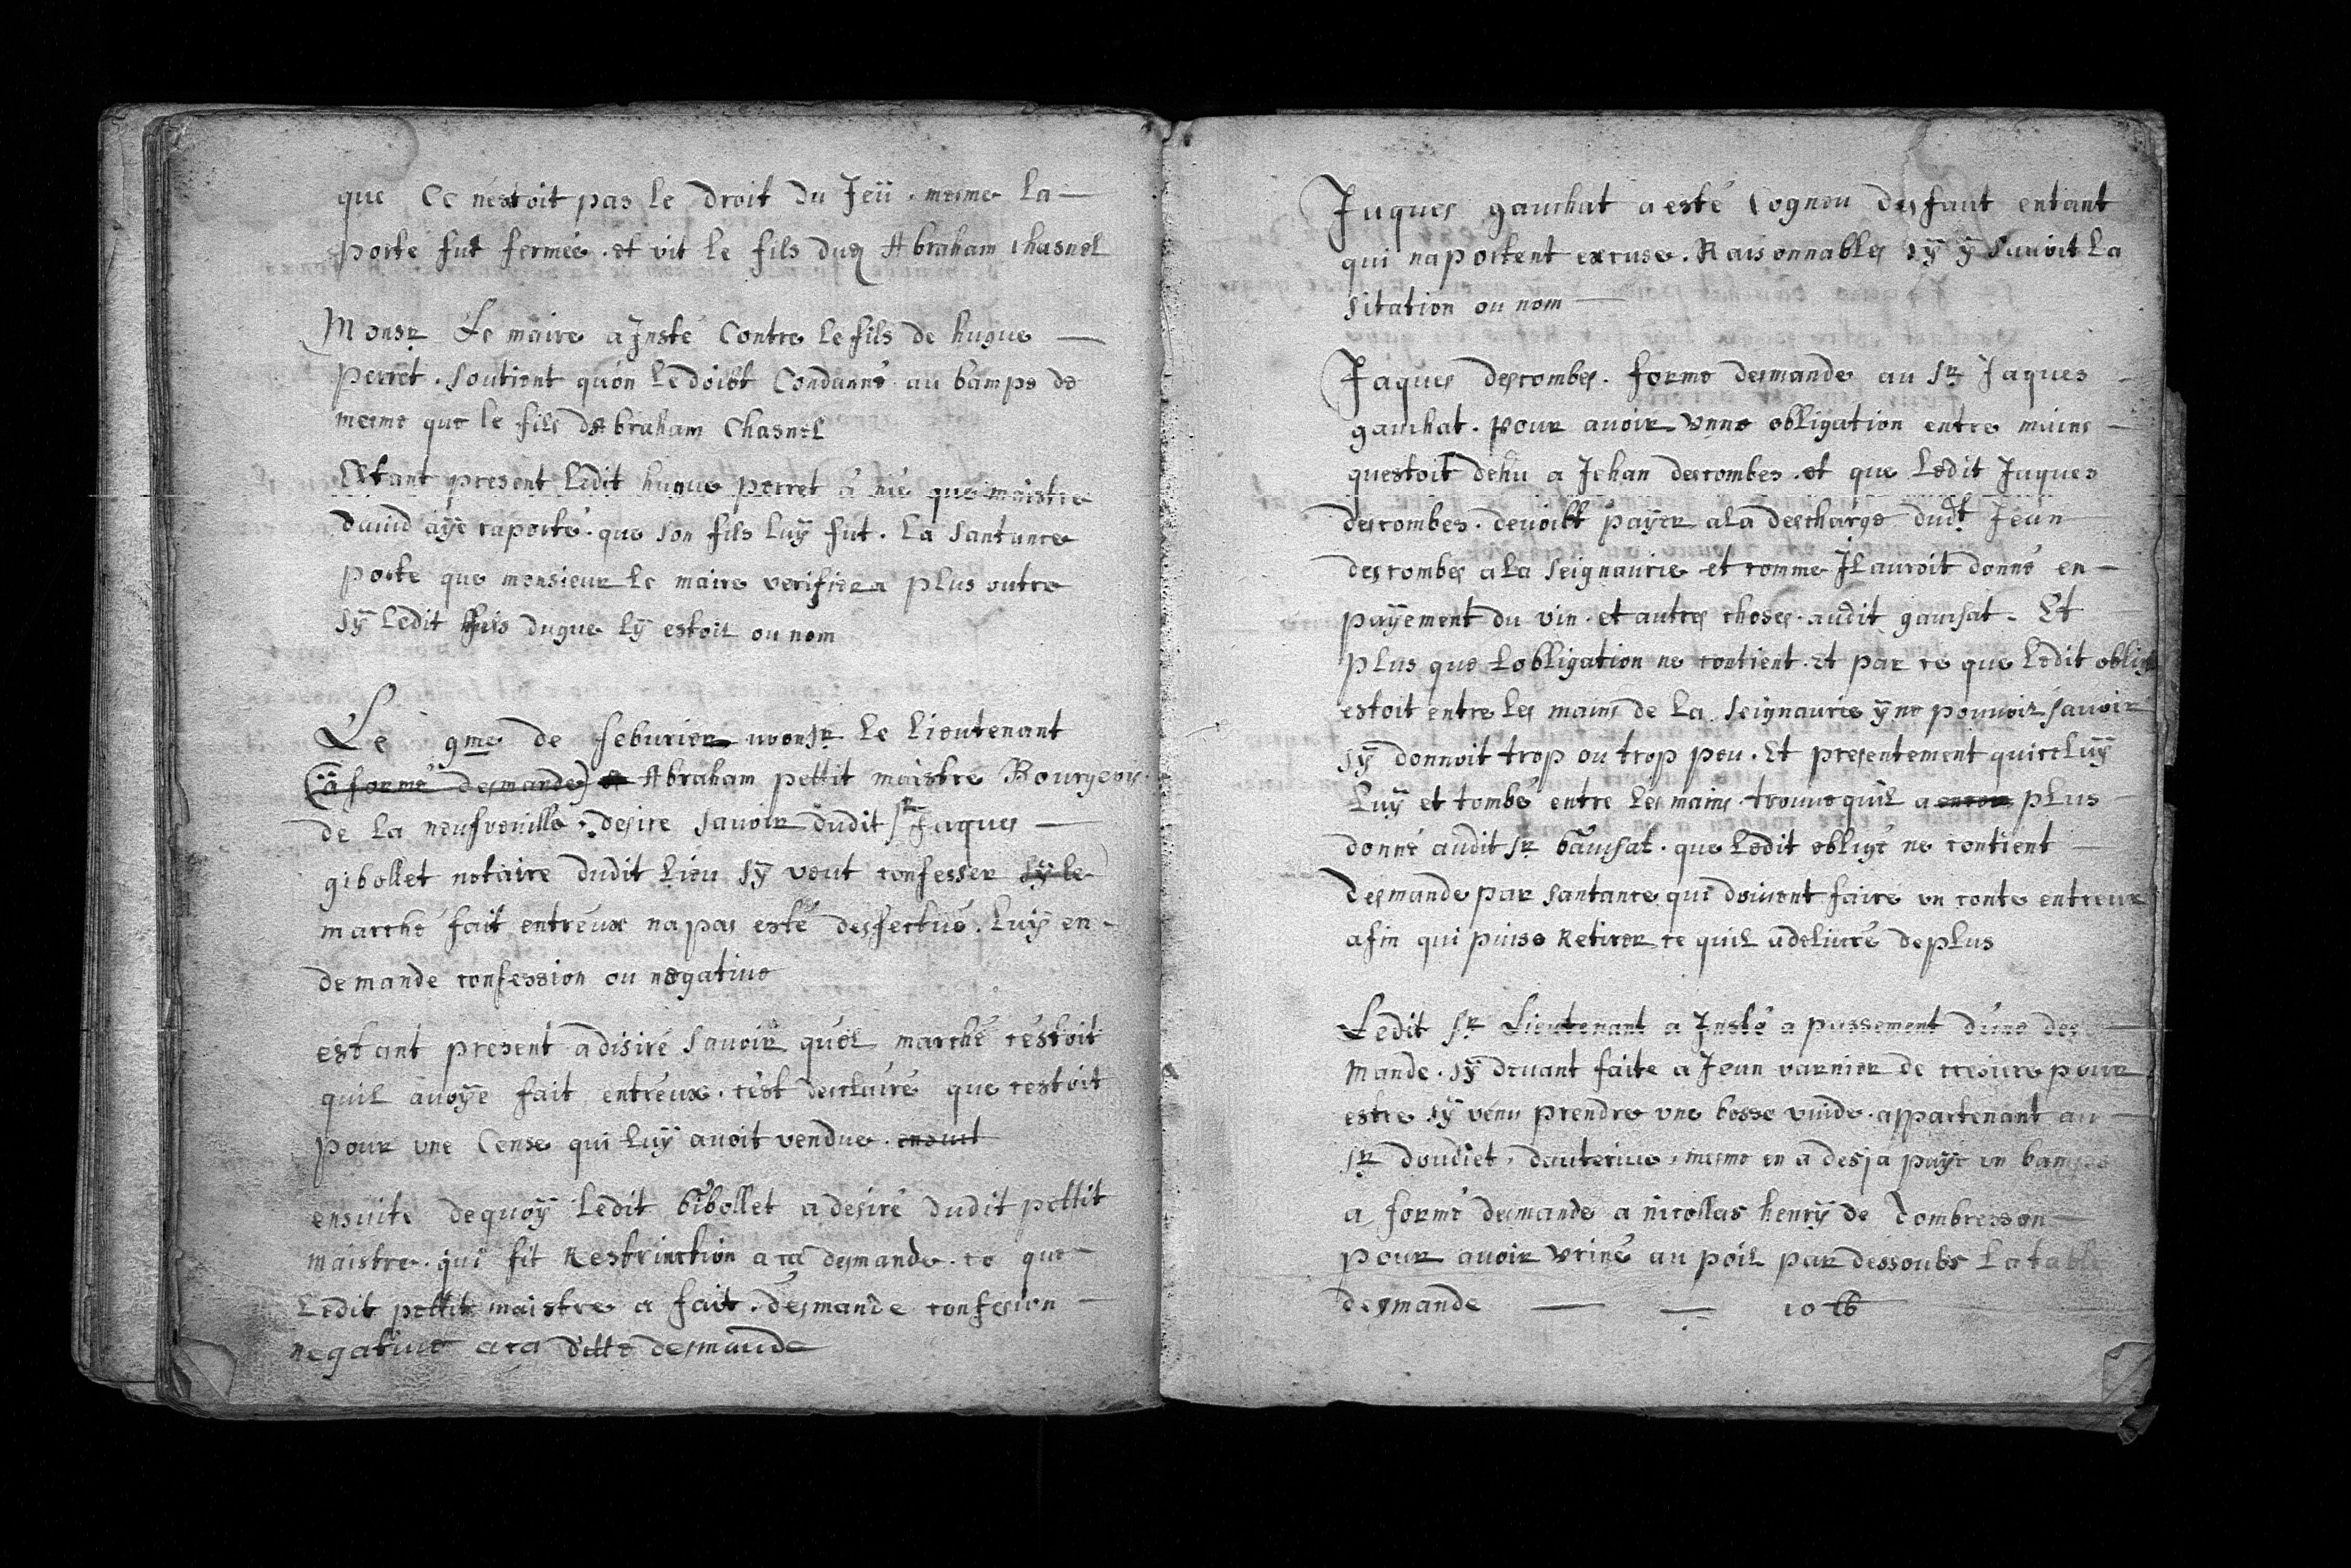 que Ce nestoit pas le droit du Jeü . mesme la —
porte fut fermée . et vit le fils dud Abraham Chasnel
Monsr Le maire a Insté Contre le fils de hugue —
perret . soutient quon le doibt Condanné au bampe de
mesme que le fils dAbraham Chasnel
Estant present ledit hugue perret a nié que maistre
david aÿe raporté . que son fils luÿ fut . la santance
porte que monsieur le maire verifiera plus outre
sÿ ledit dugue lÿ estoit ou nom
Le 9me de feburier monsr le lieutenant
(a formé desmande) Abraham pettit maistre Bourgeois
de la neufveuille . desire savoir dudit sr Jaques —
gibollet notaire dudit lieu sÿ veut confesser sÿ le
marché fait entreux na pas esté desfectué . Luÿ en -
demande confession ou negative
estant present a disiré savoir quel marché cestoit
quil avoÿe fait entreux . cest desclairé que cestoit
pour une Cense qui luÿ avoit vendue . ensuit
ensuite dequoÿ ledit Gibollet a desiré dudit pettit
maistre . qui fit Restrinction a ca desmande . ce que —
Ledit pettit maistre a fait . desmande confesion —
negative a ca ditte desmande
Jaques gauchat a esté Cogneu desfaut entant
qui naportent excuse . Raisonnables sÿ ÿ savoit la
sitation ou nom —
Jaques descombes . forme desmande au sr Jaques -
gauchat . pour avoir unne obligation entre mains -
questoit dehu a Jehan descombes . et que ledit Jaques
descombes . devoibt paÿer a la descharge dudt Jean
descombes a la seignaurie et comme Jl auroit donné en —
paÿement du vin . et autres choses . audit gausat . Et
plus que lobligation ne contient . et par ce que ledit oblig
estoit entre les mains de la seignaurie ÿ ne pouvoir savoir
sÿ donnoit trop ou trop peu . Et presentement quicelluÿ
luÿ et tombé entre les mains . trouve quil a plus -
donné audit sr Gausat . que ledit obligé ne contient —
Desmande par santance qui doivent faire un conte entreux
afin qui puise Retirer ce quil a delivré de plus
Ledit sr Lieutenant a Jnsté a passement dune des —
mande . sÿ devant faite a Jean varnier de cresiere pour
estre sÿ venu prendre une bosse vuide . appartenant au —
sr doudiet . dauterive . mesme en a desja paÿé un bampe
a formé desmande a nicollas henrÿ de Dombresson —
pour avoir uriné au poil par dessoubs la table
desmande — — 10 ℔